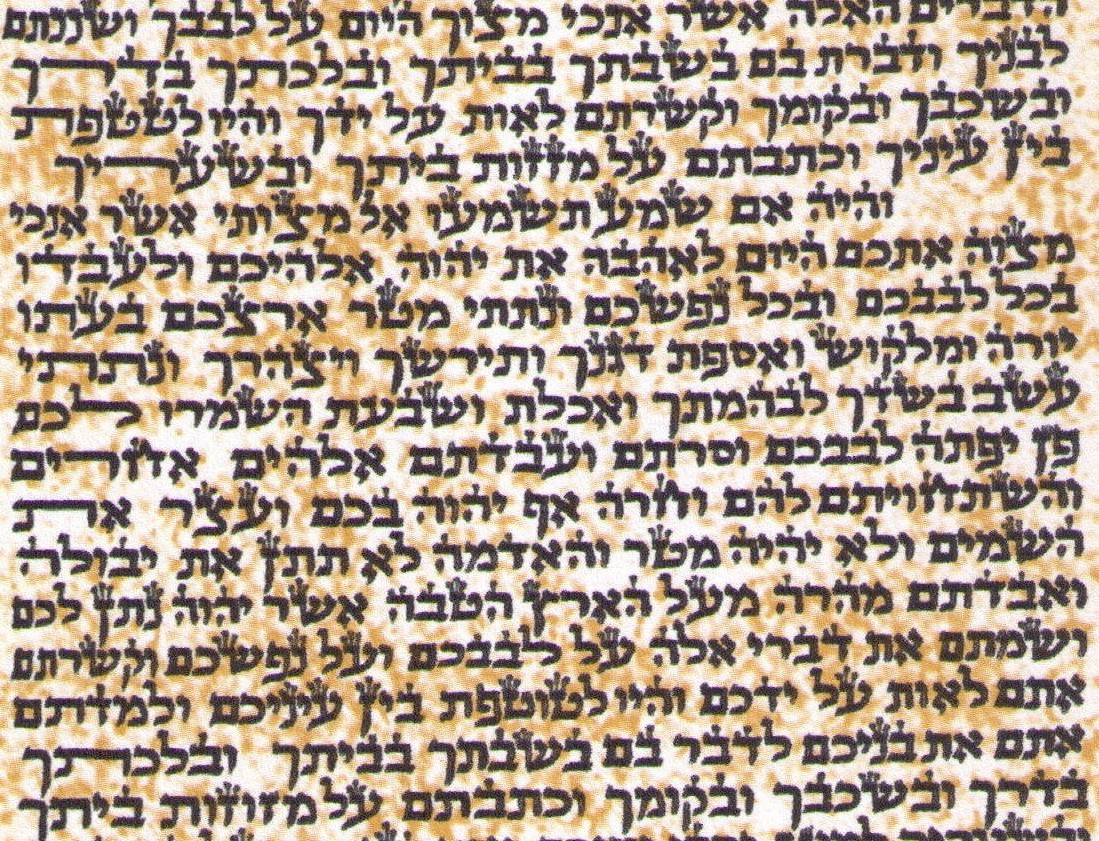 הדברים האלה אשר אנכי מצוך היום על לבבך ושננתם
לבניך ודברת בם בשבתך בביתך ובלכתך בדרך
ובשכבך ובקומך וקשרתם לאות על ידך והיו לטטפת
בין עיניך וכתבתם על מזזות ביתך ובשעריך
והיה אם שמע תשמעו אל מצותי אשר אנכי
מצוה אתכם היום לאהבה את יהוה אלהיכם ולעבדו
בכל לבבכם ובכל נפשכם ונתתי מטר ארצכם בעתו
יורה ומלקוש ואספת דגנך ותירשך ויצהרך ונתתי
עשב בשדך לבהמתך ואכלת ושבעת השמרו לכם
פן יפתה לבבכם וסרתם ועבדתם אלהים אחרים
והשתחויתם להם וחרה אף יהוה בכם ועצר את
השמים ולא יהיה מטר והאדמה לא תתן את יבולה
ואבדתם מהרה מעל הארץ הטבה אשר יהוה נתן לכם
ושמתם את דברי אלה על לבבכם ועל נפשכם וקשרתם
אתם לאות על ידכם והיו לטוטפת בין עיניכם ולמדתם
אתם את בניכם לדבר בם בשבתך בביתך ובלכתך
בדרך ובשכבך ובקומך וכתבתם על מזוזות ביתך